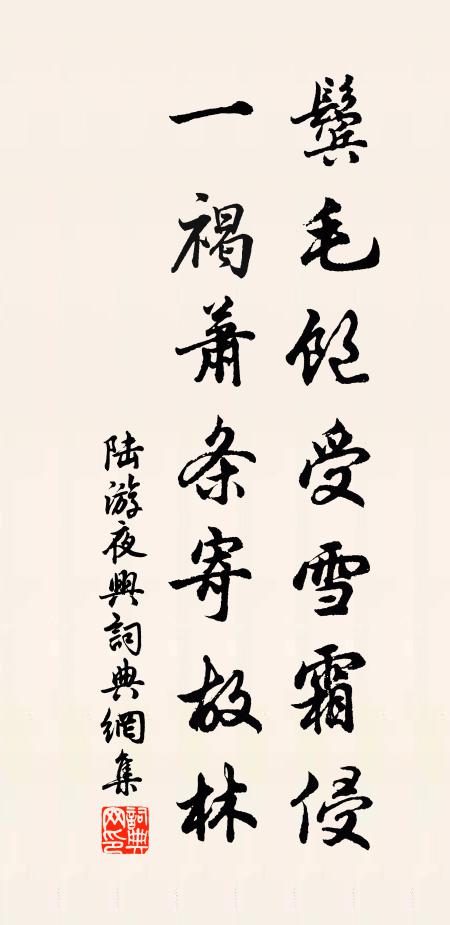 鬓毛饱受雪霜侵
一褐萧条寄故林
陆游夜興詞典網集
詞典
网印